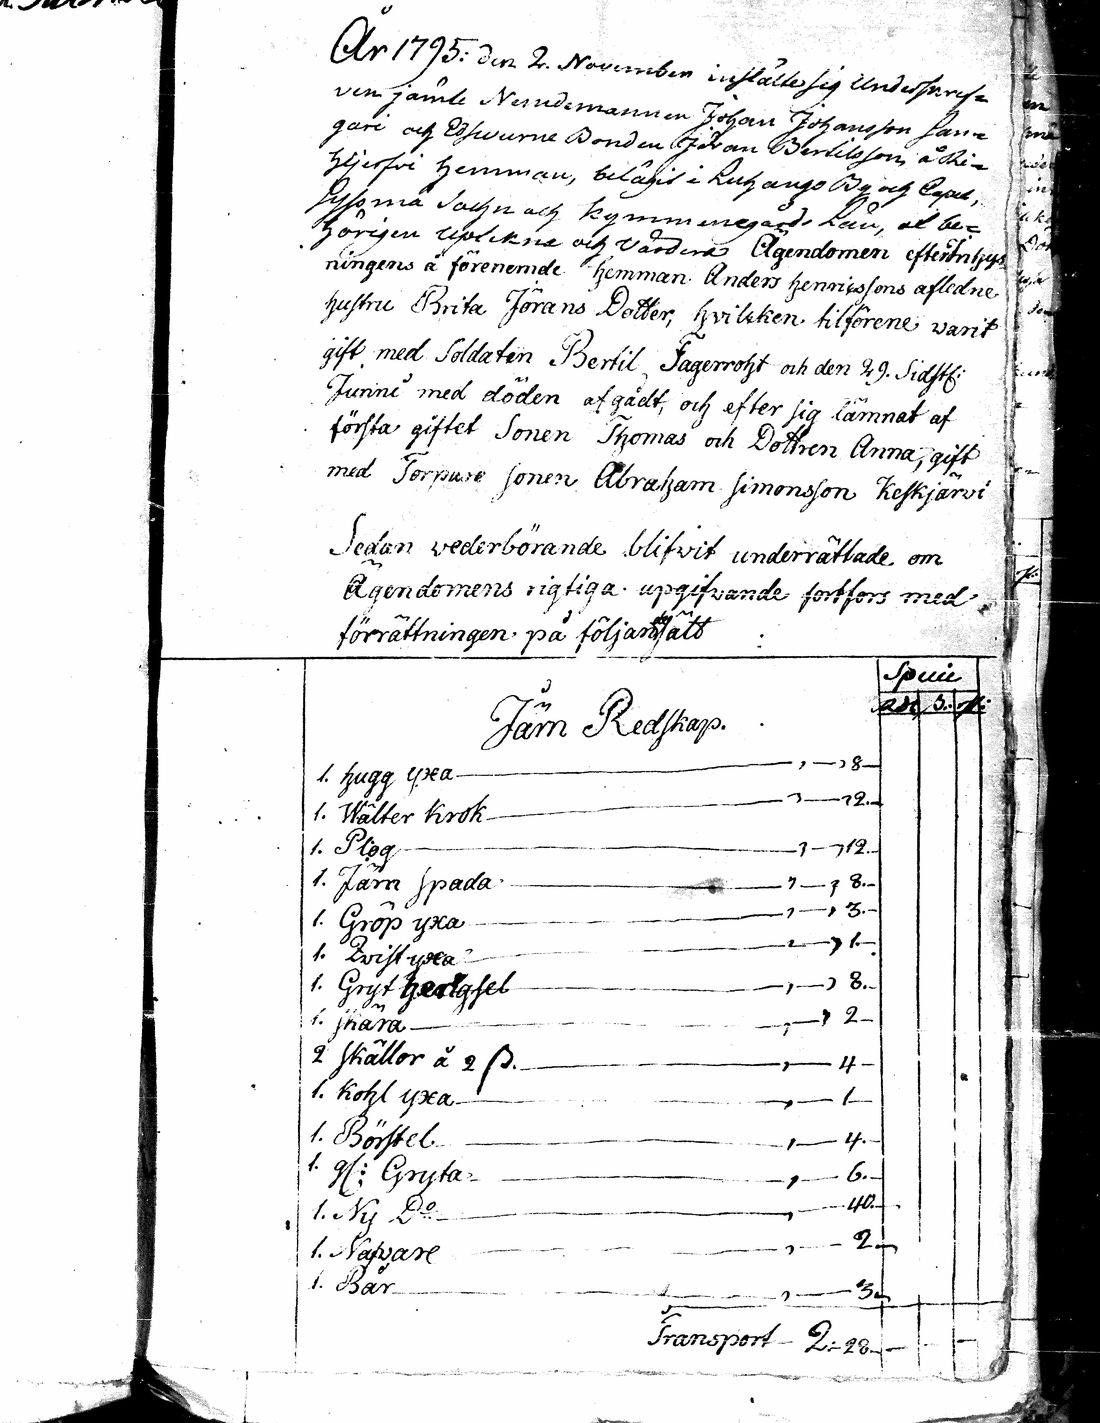 År 1795: den 2. November instälte sig Underskref=
ven jämte Nemdemannen Johan Johansson Lan=
gari och Edsvurne Bonden Jöran Bertilsson å
hemman, belägit i Luhango By och
Syssmä Sochn och Kymmenegårds Län, at be=
hörigen uptekna och Värdera Ägendomen efter Inhys
ningens å förenemde hemman Anders Henrikssons afledne
hustru Brita Jörans Dotter, hvilcken tilförene varit
gift med Soldaten Bertil Fagerroht och den 29. Sidstl:
Junni med döden afgådt, och efter sig lämnat af
första giftet Sonen Thomas och Dottren Anna, gift
med Torpare sonen Abraham Simonsson Keskjärvi
Sedan vederbörande blifvit underrättade om
Ägendomens rigtiga upgifvande fortfors med
förrättningen på följand sätt :
Spcie
Rdr s. r:
Järn Redskap.
1. hugg yxa — , — , 8 —
1. Wälter krok — , — , 2. —
1. Plog — , — , 12. —
1. Järn spada — , — , 8. —
1. Gröp yxa — , — , 3. —
1. Qvist yxa — , — , 1. —
1. Gryt hengsel — , — , 8. —
1. skära — , — , 2 —
2 skällor á 2 ß. — , — 4 —
1. kohl yxa — , — 1 —
1. Börstel — , — 4. —
1. gl: Gryta — , — 6. —
1. Ny Do — , — 40. —
1. Nafvare — , — 2 —
1. Bår — , — 3 —
Transport — 2: 28 —